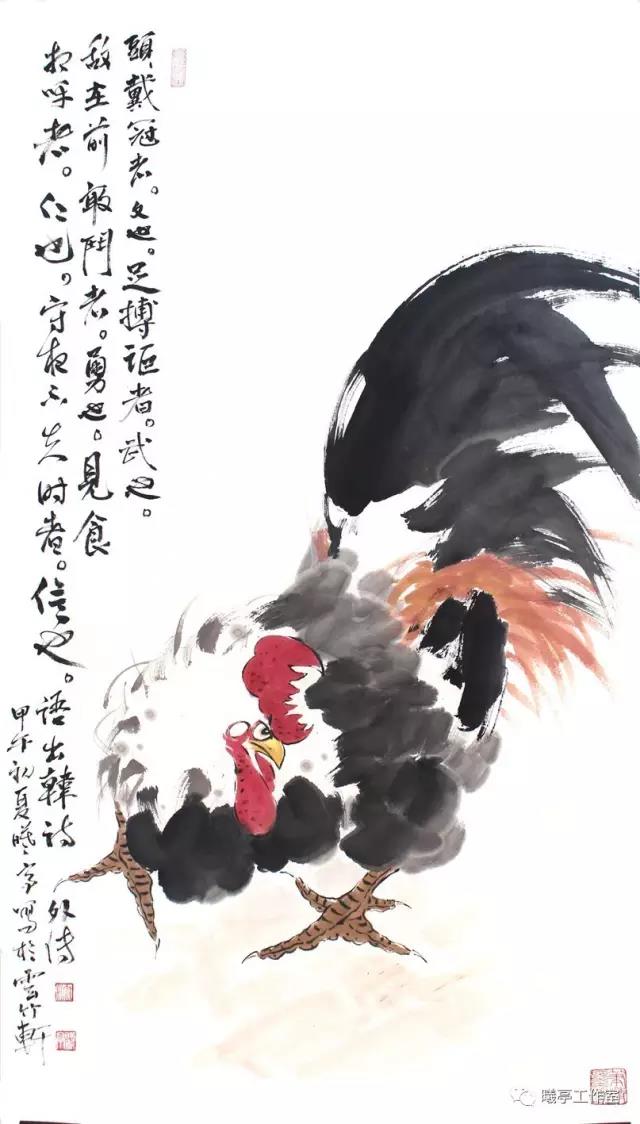 頭戴冠者。文也。足搏距者。武也。
敌在前敢鬥者。勇也。見食
相呼者。仁也。守夜不失时者。信也。語出韓詩外傳
甲午初夏曦亭寫於雲竹軒
曦亭工作室